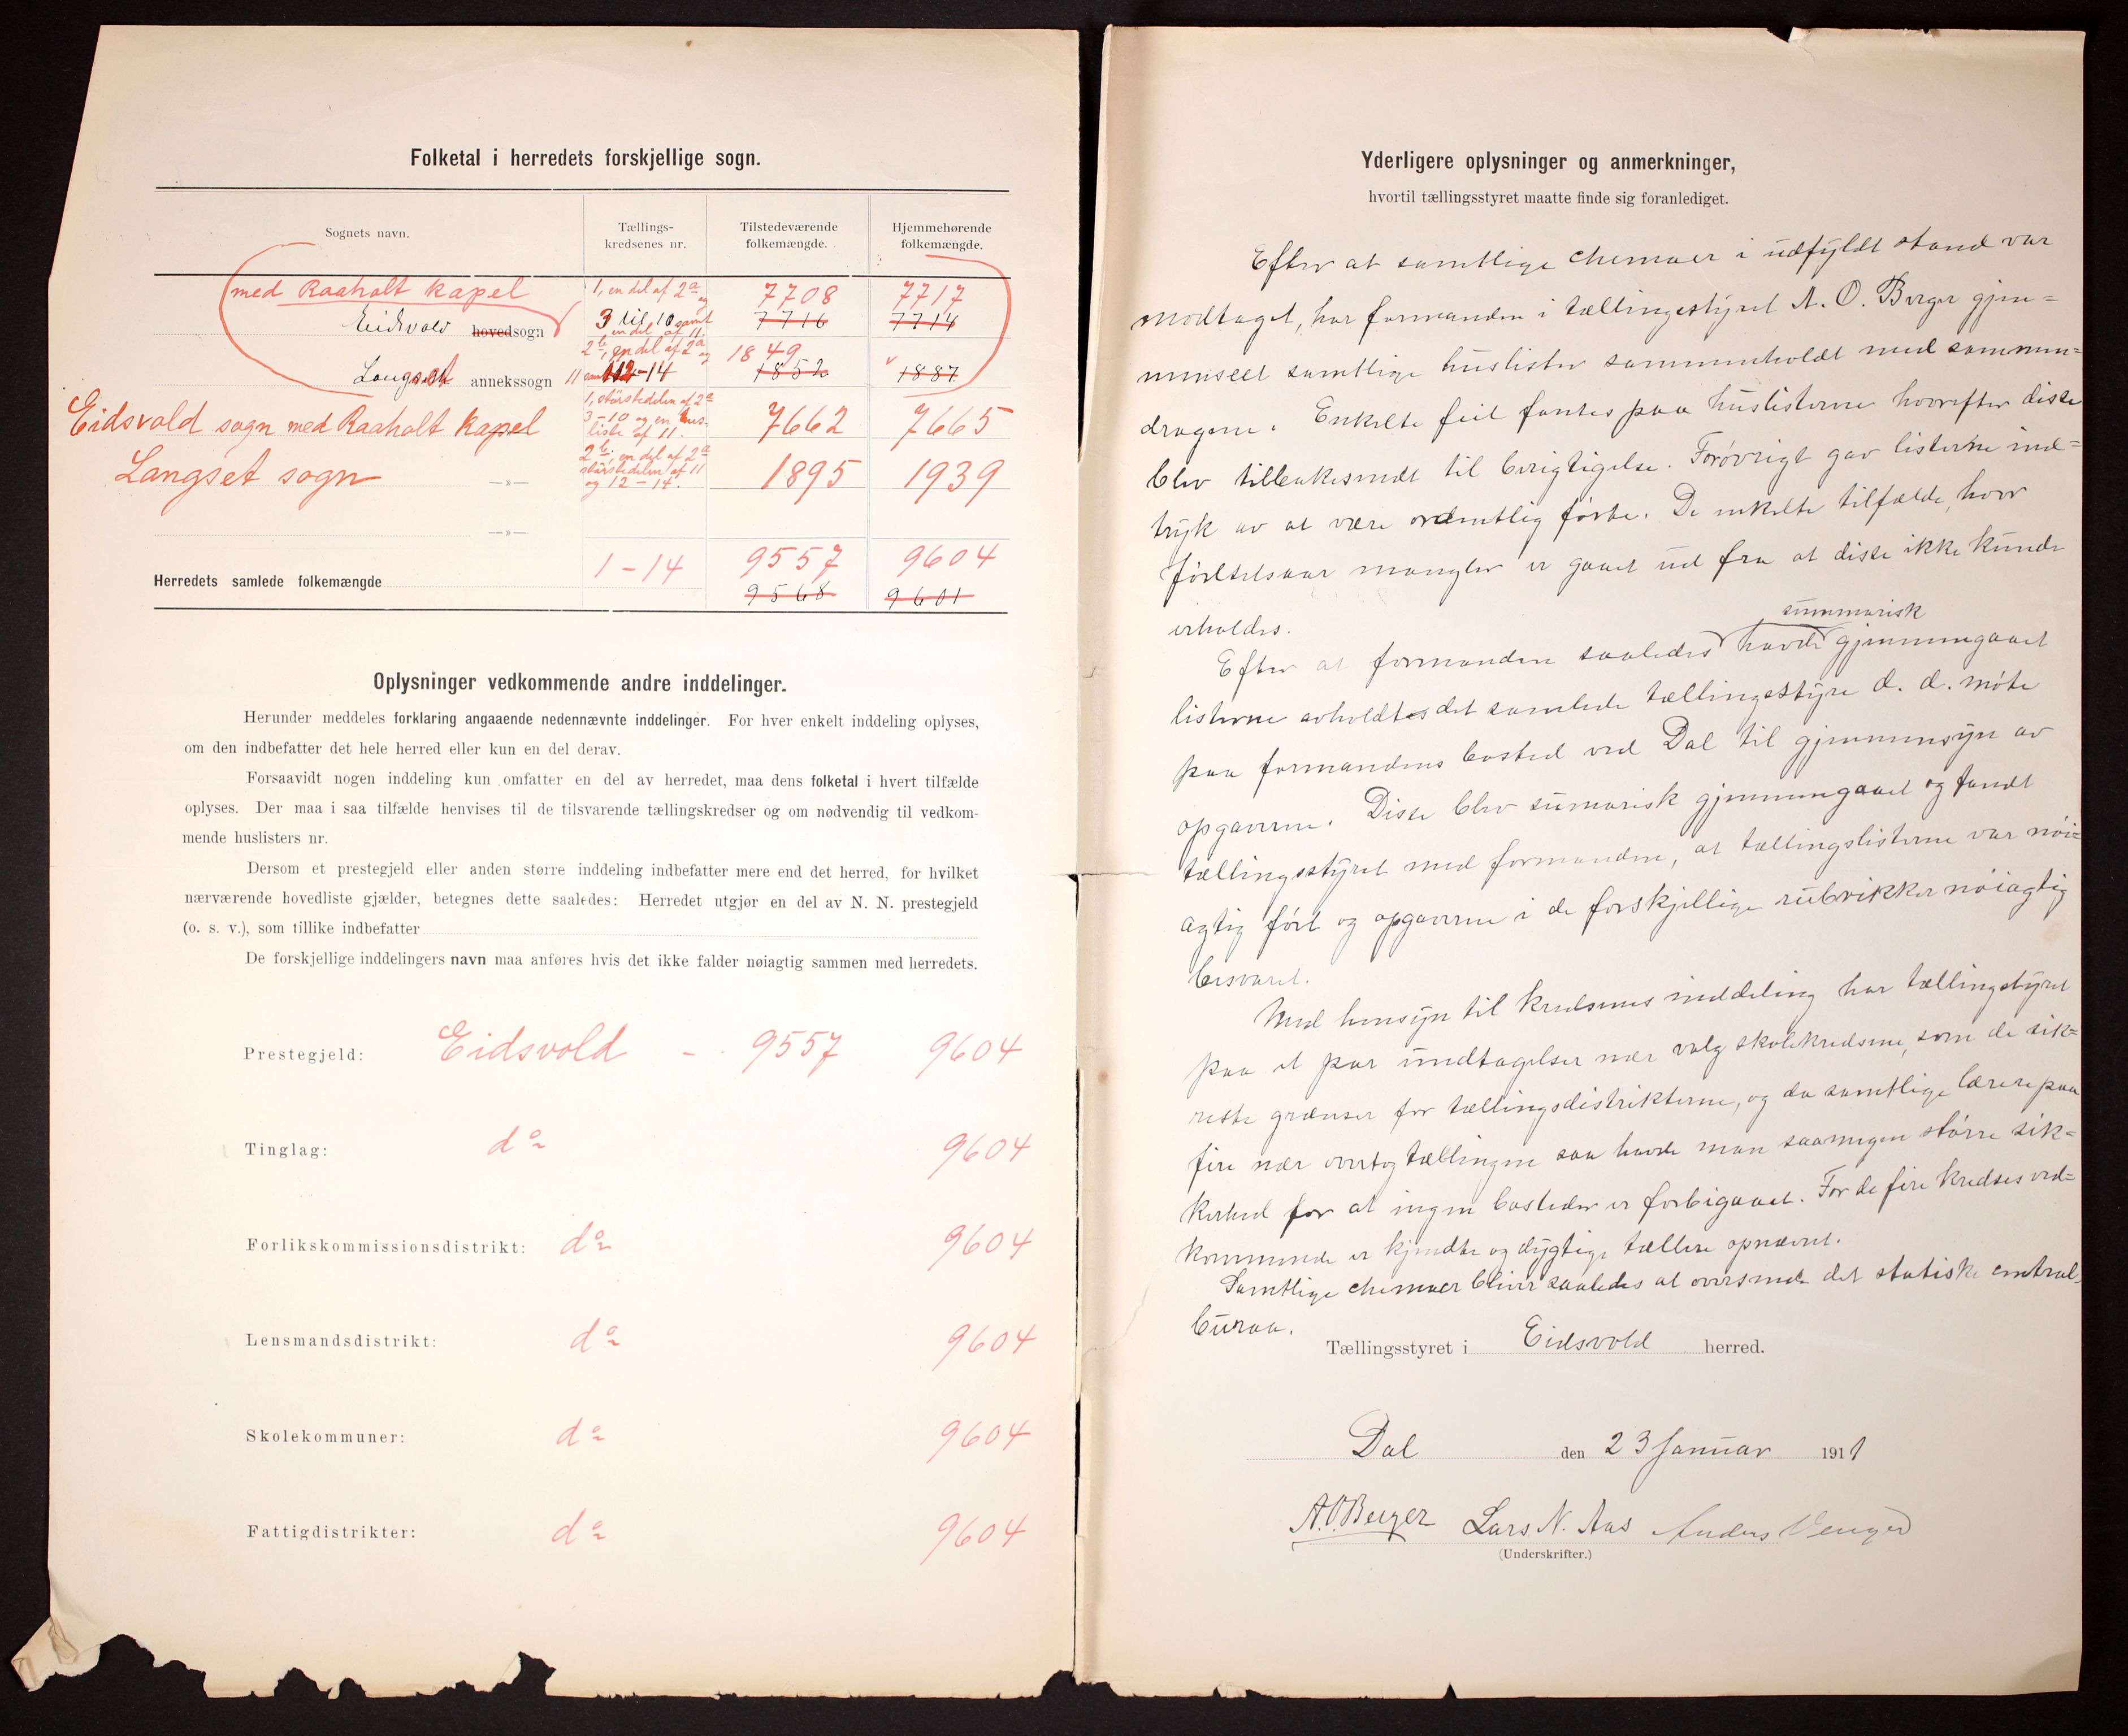 Folketal i herredets forskjellige sogn.
Sognets navn.
Tællings-
kredsenes nr.
Tilstedeværende
folkemængde.
Hjemmehørende
folkemængde.
med Raaholt kapel 1, en del af 2a og 7708 7717
Eidsvold hovedsogn 3 til 10 samt en del af 11. 7716 7714
2b, en del af 2a og 1849
Langset annekssogn 11 12-14 1852 1887
Eidsvold sogn med Raaholt kapel 1, størstedelen af 2a 3-10 og en husliste af 11. 7662 7665
Langset sogn —»— 2b, en del af 2a størstedelen af 11 og 12-14. 1895 1939
—»—
1-14 9557 9604
Herredets samlede folkemængde 9568 9601
Oplysninger vedkommende andre inddelinger.
Herunder meddeles forklaring angaaende nedennævnte inddelinger. For hver enkelt inddeling oplyses,
om den indbefatter det hele herred eller kun en del derav.
Forsaavidt nogen inddeling kun omfatter en del av herredet, maa dens folketal i hvert tilfælde
oplyses. Der maa i saa tilfælde henvises til de tilsvarende tællingskredser og om nødvendig til vedkom-
mende huslisters nr.
Dersom et prestegjeld eller anden større inddeling indbefatter mere end det herred, for hvilket
nærværende hovedliste gjælder, betegnes dette saaledes: Herredet utgjør en del av N. N. prestegjeld
(o. s. v.), som tillike indbefatter
De forskjellige inddelingers navn maa anføres hvis det ikke falder nøiagtig sammen med herredets.
Prestegjeld: Eidsvold - 9557 9604
Tinglag: do 9604
Forlikskommissionsdistrikt: do 9604
Lensmandsdistrikt: do 9604
Skolekommuner: do 9604
Fattigdistrikter: do 9604
Yderligere oplysninger og anmerkninger,
hvortil tællingsstyret maatte finde sig foranlediget.
Efter at samtlige chemaer i udfyldt stand var
modtaget, har formanden i tællingsstyret A. O. Berger gjen=
nemseet samtlige huslister sammenholdt med sammen=
dragene. Enkelte feil fantes paa huslisterne hvorefter disse
blev tilbakesendt til berigtigelse. Forøvrigt gav listerne ind=
tryk av at være ordentlig førte. De enkelte tilfælde, hvor
fødselsaar mangler er gaaet ud fra at disse ikke kunde
erholdes.
summarisk
Efter at formanden saaledes havde gjennemgaaet
listerne avholdtes det samlede tællingsstyre d. d. møte
paa formandens bosted ved Dal til gjennemsyn av
opgaverne. Disse blev sumarisk gjennemgaaet og fandt
tællingsstyret med formanden, at tællingslisterne var nøi=
agtig ført og opgaverne i de forskjellige rubrikker nøiagtig
besvaret.
Med hensyn til kredsenes inddeling har tællingstyret
paa et par undtagelser nær valg skolekredsene, som de sik=
reste grænser for tællingsdistrikterne, og da samtlige lærere paa
fire nær overtog tællingen saa havde man saamegen større sik=
kerhed for at ingen bosteder er forbigaaet. For de fire kredses ved=
kommende er kjendte og dygtige tællere opnævnt.
Samtlige chemaer bliver saaledes at oversende det statiske central
buraa.
Tællingsstyret i Eidsvold herred.
Dal den 23 Januar 1911
A. O. Berger Lars N. Aas Anders Venger
(Underskrifter.)